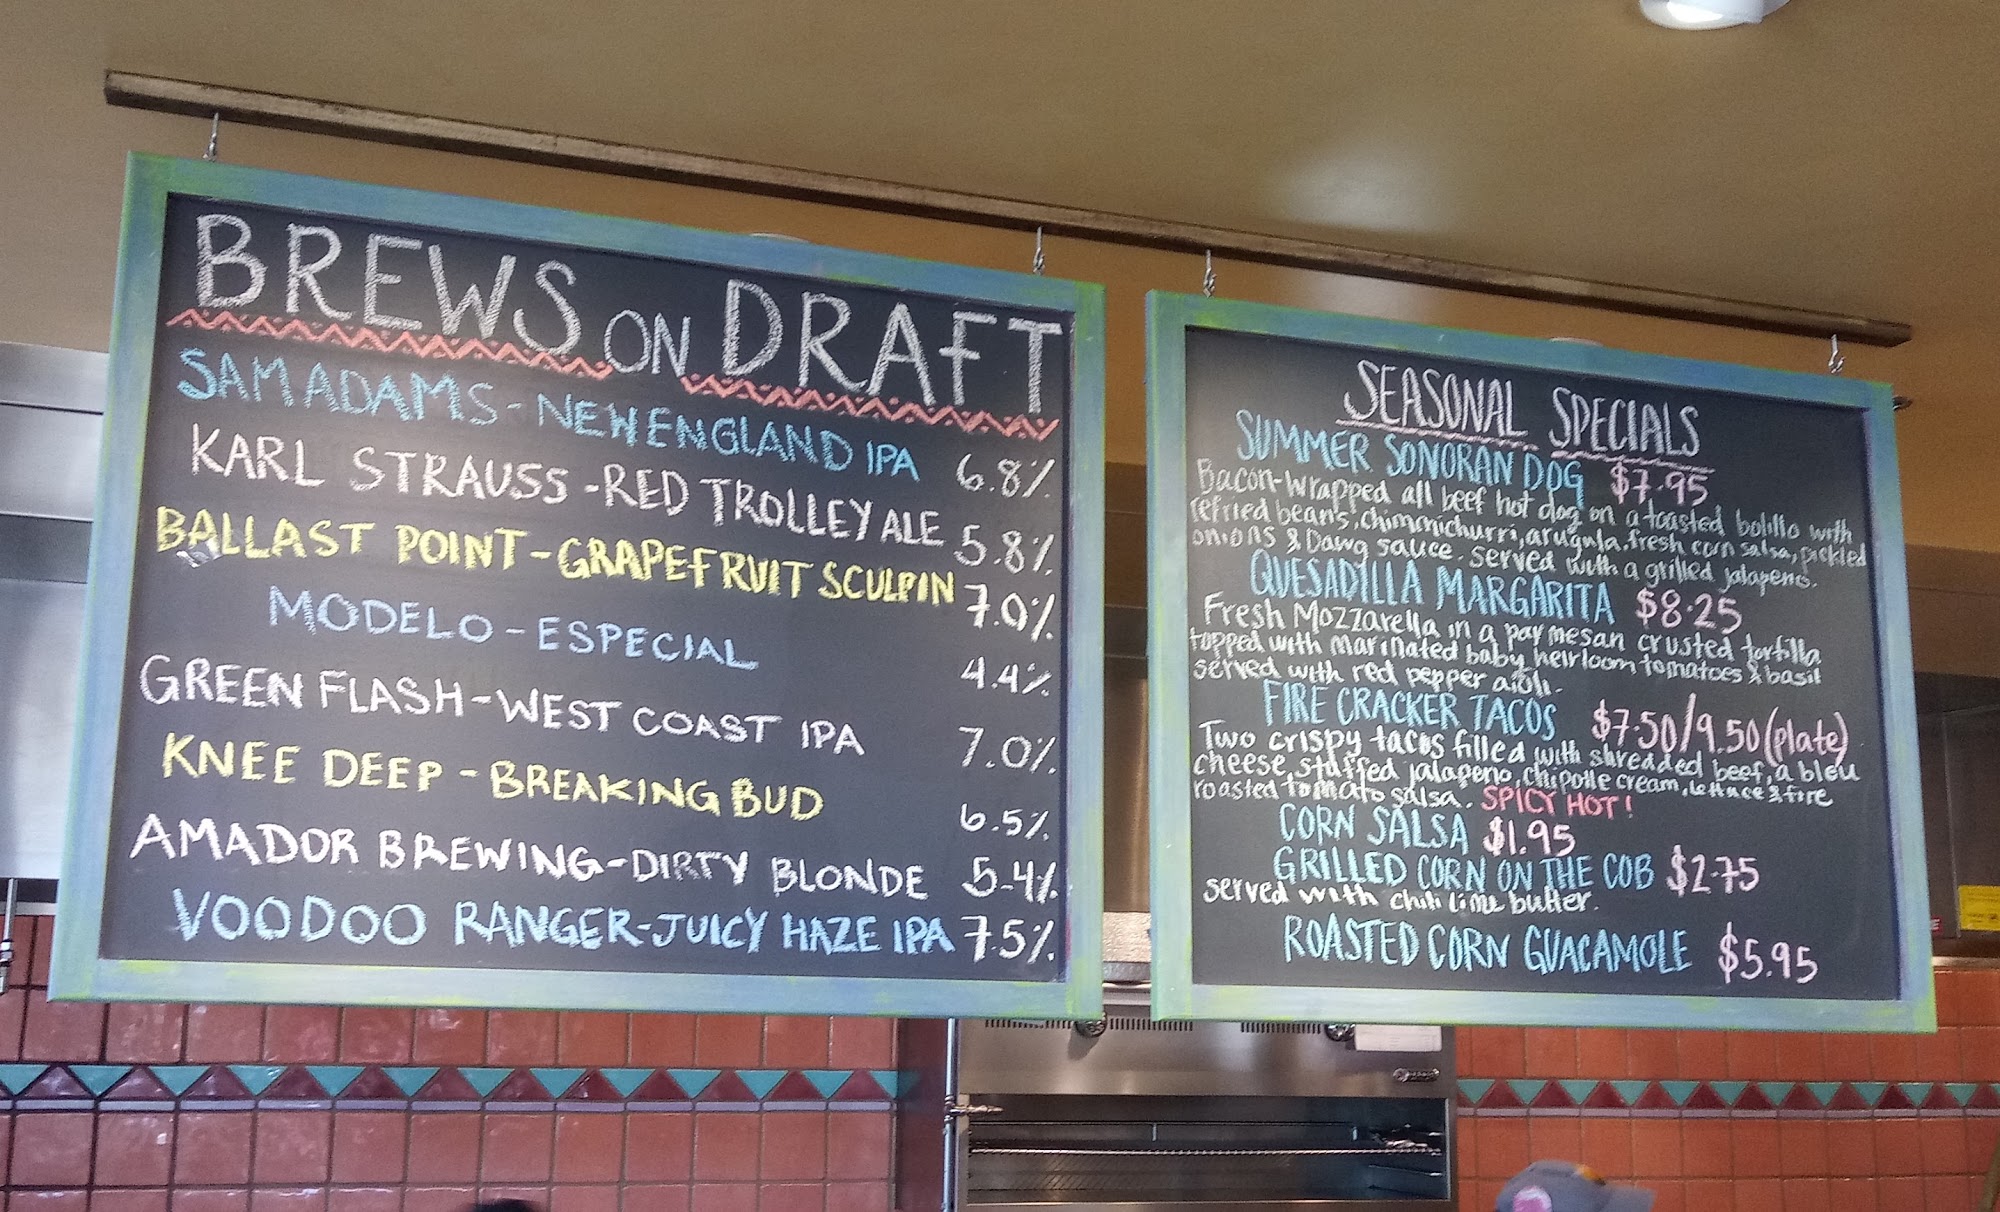 BREWS ON DRAFT
SAM ADAMS - NEW ENGLAND IPA 6.8%
KARL STRAUSS - RED TROLLEY ALE 5.8%
BALLAST POINT - GRAPEFRUIT SCULPIN 7.0%
MODELO - ESPECIAL 4.4%
GREEN FLASH - WEST COAST IPA 7.0%
KNEE DEEP - BREAKING BUD 6.5%
AMADOR BREWING - DIRTY BLONDE 5.4%
VOODOO RANGER - JUICY HAZE IPA 7.5%
SEASONAL SPECIALS
SUMMER SONORAN DOG $7.95
Bacon-wrapped all beef hot dog on a toasted bolillo with
refried beans, chimmichurri, arugula, fresh corn salsa, pickled
onions & Dawg sauce. served with a grilled jalapeno.
QUESADILLA MARGARITA $8.25
Fresh Mozzarella in a parmesan crusted tortilla
topped with marinated baby heirloom tomatoes & basil
served with red pepper aioli.
FIRE CRACKER TACOS $7.50/9.50 (plate)
Two crispy tacos filled with shredded beef, a bleu
cheese stuffed jalapeno, chipotle cream, lettuce & fire
roasted tomato salsa. SPICY HOT!
CORN SALSA $1.95
GRILLED CORN ON THE COB $2.75
served with chili lime butter.
ROASTED CORN GUACAMOLE $5.95